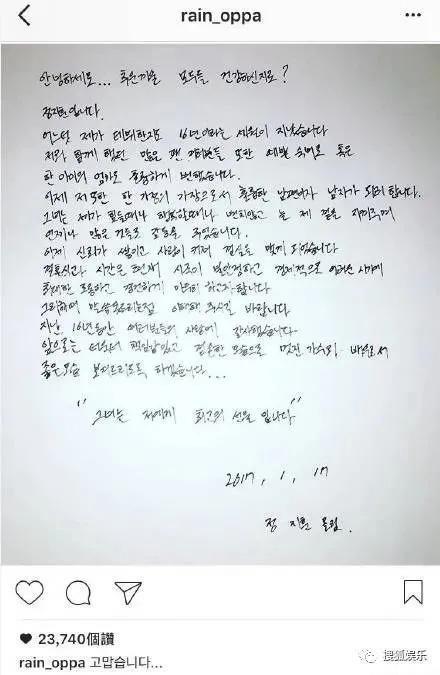 rain_oppa
안녕하세요... 추운겨울 모두들 건강하신지요?
정지훈입니다.
어느덧 제가 데뷔한지도 16년이라는 세월이 지났습니다
저와 함께 했던 많은 팬 여러분들 또한 예쁜 숙녀로 혹은
한 아이의 엄마로 훌륭하게 변했습니다.
이제 저 또한 한 가정의 가장으로서 훌륭한 남편이자 남자가 되려 합니다.
그녀는 제가 힘들때나 행복할때나 변치않고 늘 제 곁을 지켜주며
언제나 많은 것들로 감동을 주었습니다.
이제 신뢰가 쌓이고 사랑이 커져 결실을 맺게 되었습니다
결혼식과 시간은 현재 시국이 불안정하고 경제적으로 어려운 시기에
최대한 조용하고 경건하게 치르려 하고자합니다
그리하여 말씀못드리는점 이해해 주시길 바랍니다
지난 16년동안 여러분들의 사랑에 감사했습니다
앞으로는 더욱더 책임감있고 겸손한 모습으로 멋진 가수와 배우로서
좋은모습 보여드리도록 하겠습니다...
" 그녀는 저에게 최고의 선물 입니다 "
2017, 1, 17
정 지훈 올림.
23,740個讚
rain_oppa 고맙습니다...
搜狐娱乐